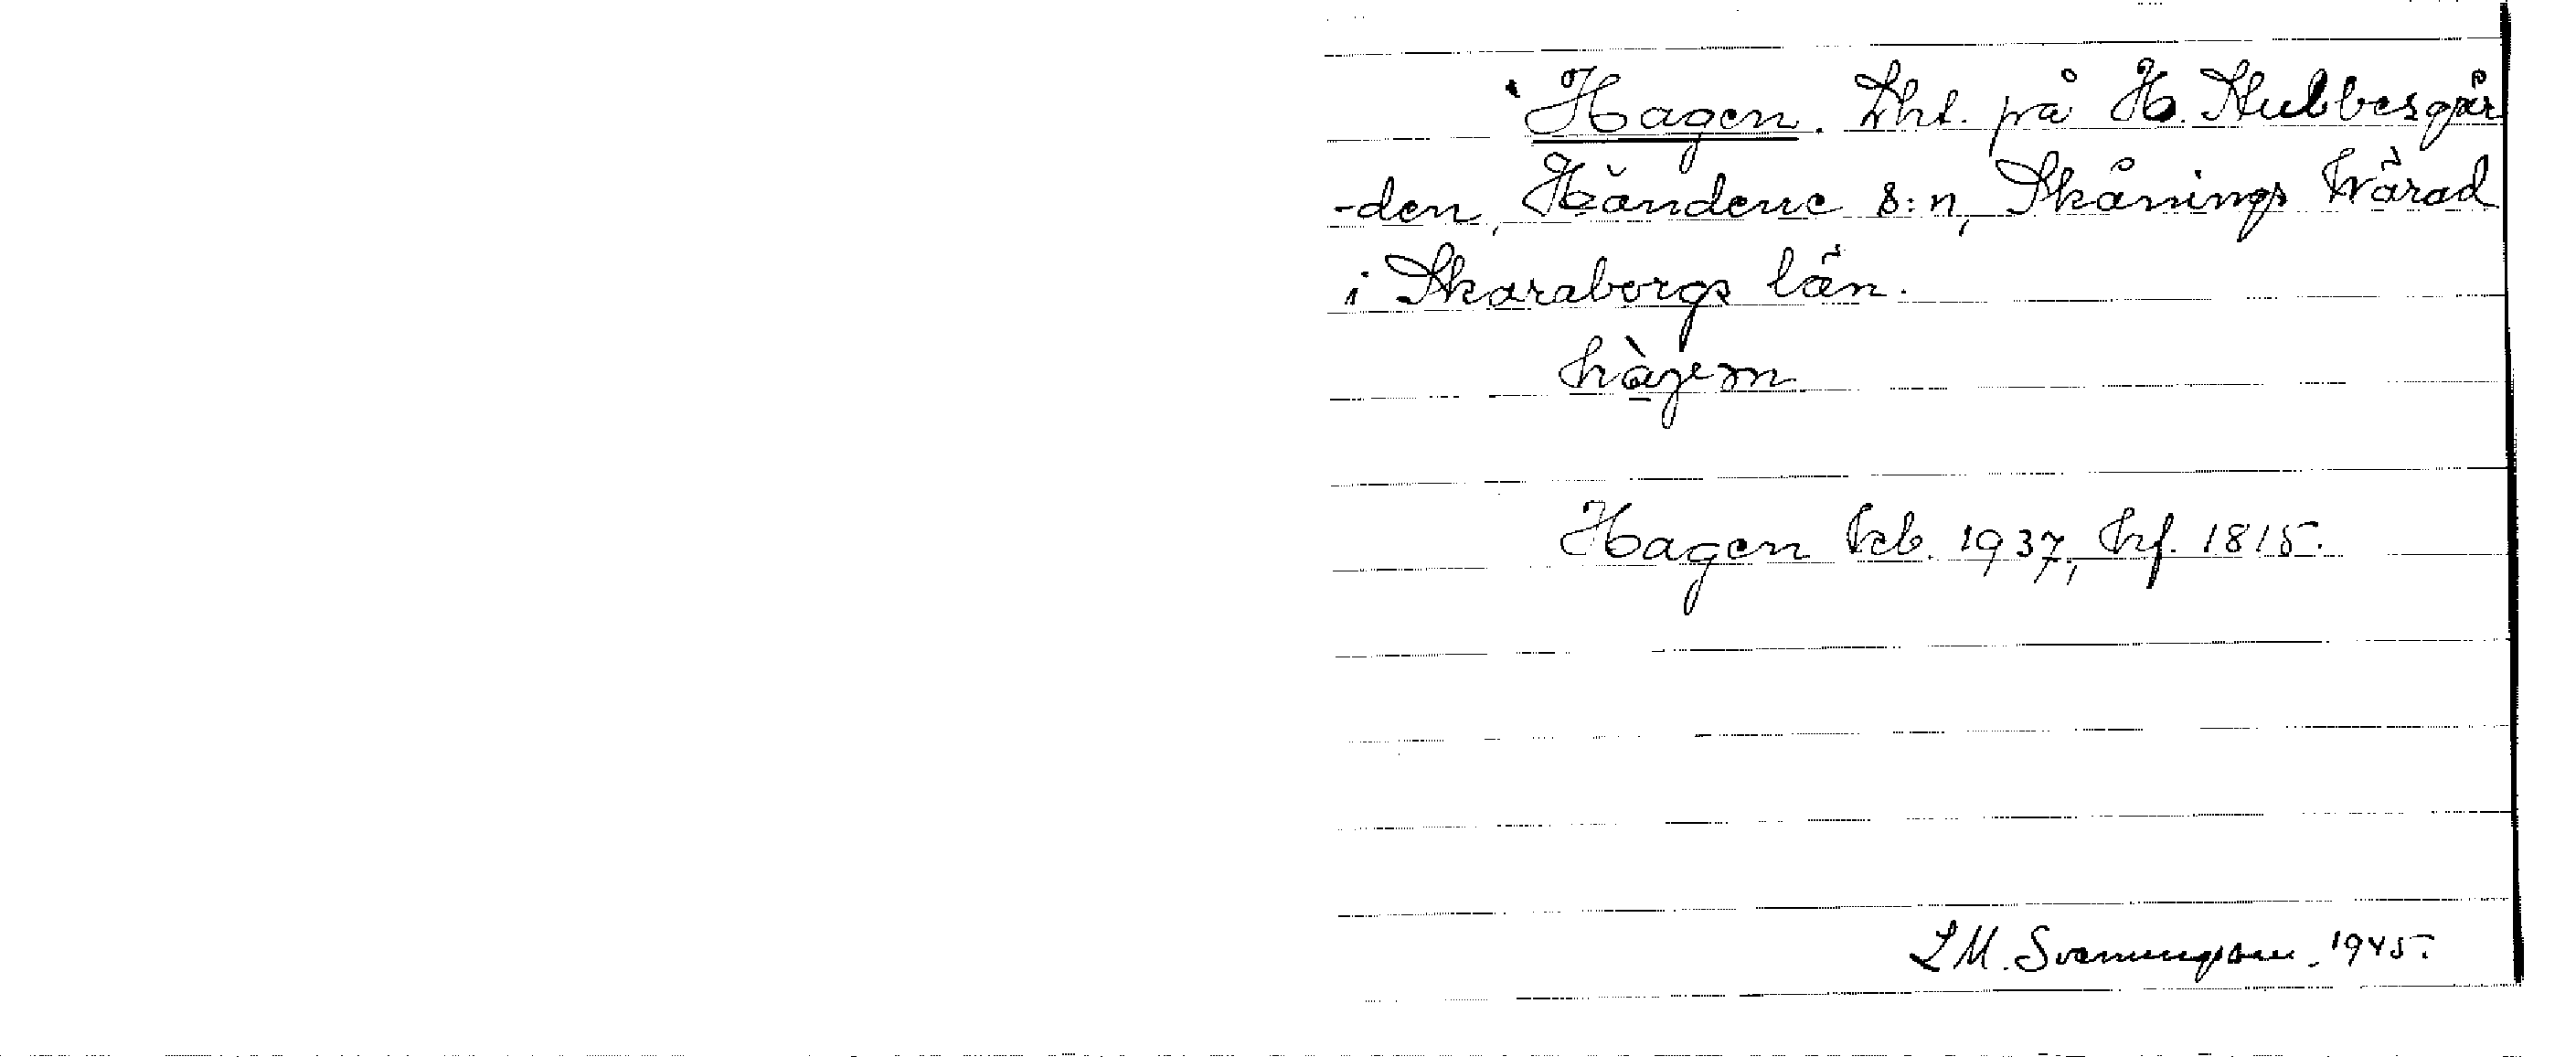 Hagen. Lht. på H. Stubbesgår
-den, Händene s:n, Skånings härad
i Skaraborgs län.
hàgen
Hagen kb. 1937, hf. 1815.
L M. Svenungsson. 1945.